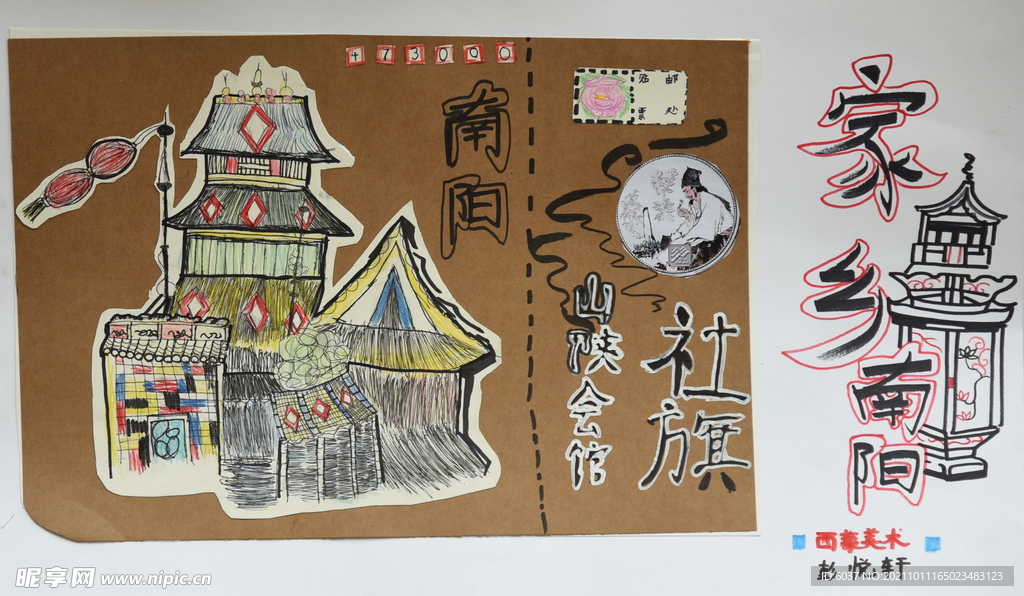 473000
南阳
贴邮
票处
山陕会馆
社旗
家乡
南阳
西蔡美术
彭悦轩
昵享网 www.nipic.cn
ID:6037 NO:20211011165023483123